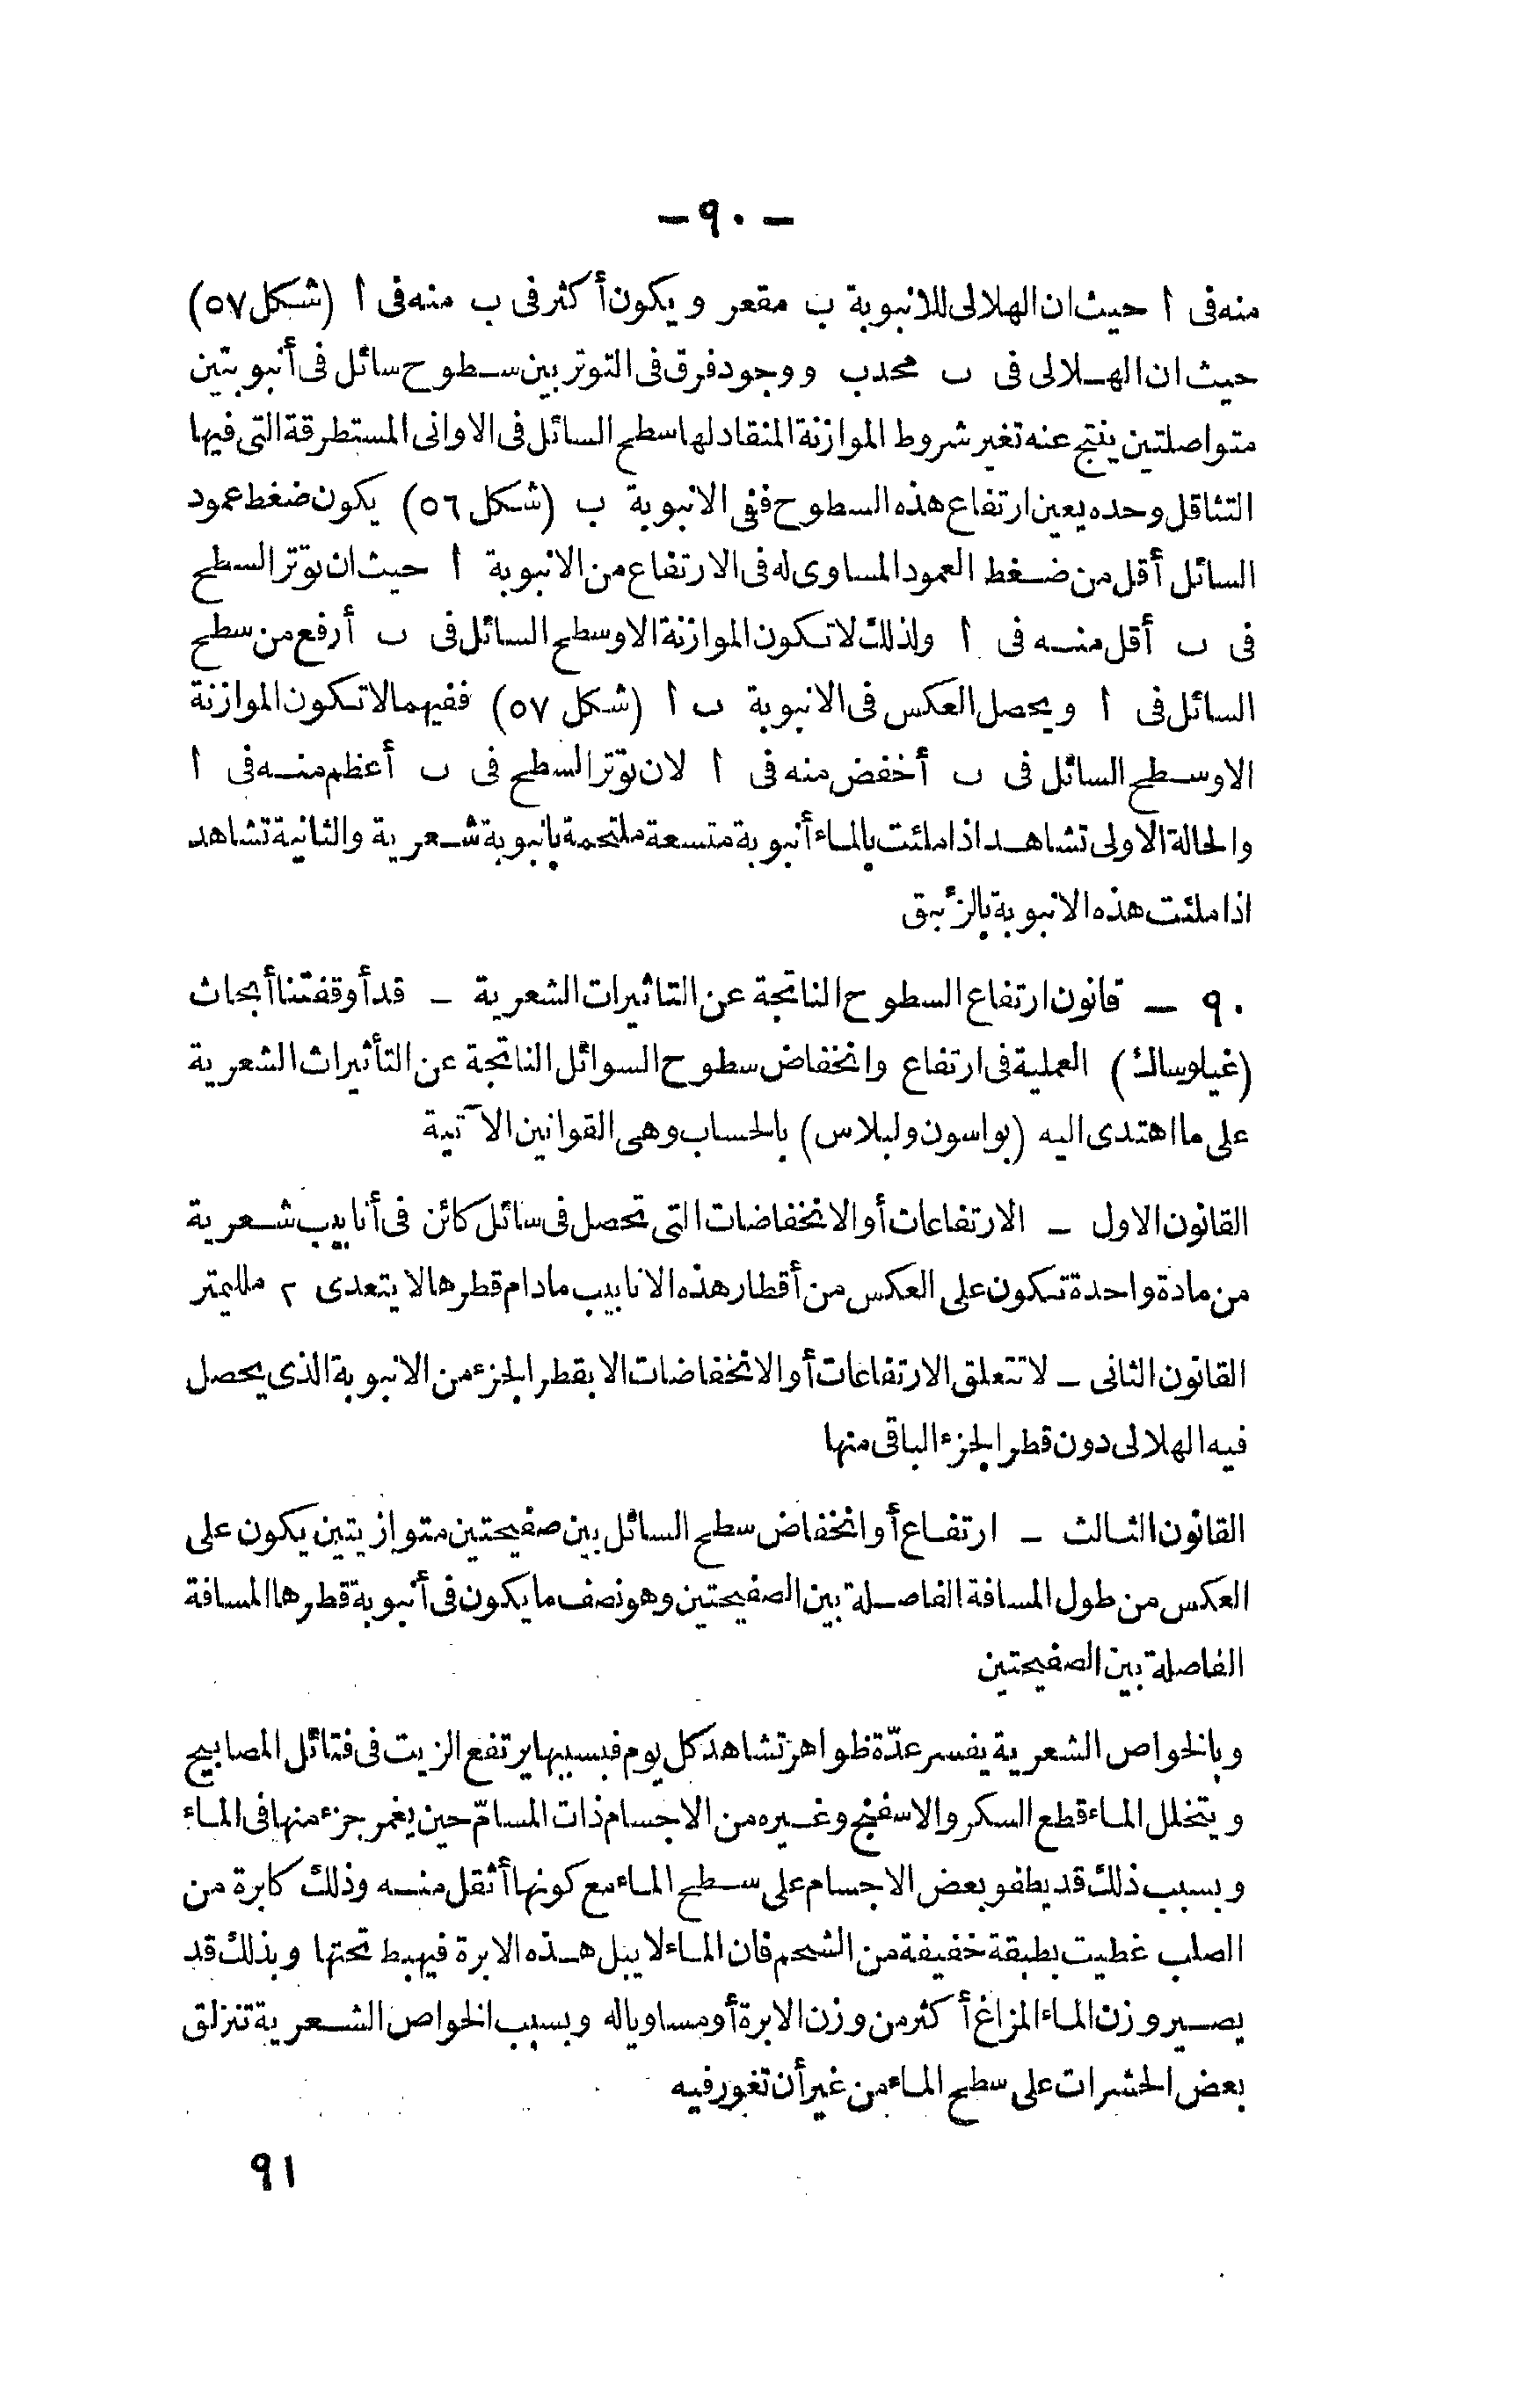 - ٩٠ -
منه فى ا حيث ان الهلالى للانبوبة ب مقعر ويكون أكثر فى ب منه فى ا (شكل ٥٧)
حيث ان الهلالى فى ب محدب ووجود فرق فى التوتر بين سطوح سائل فى أنبوبتين
متواصلتين ينتج عنه تغير شروط الموازنة المنقاد لها سطح السائل فى الاوانى المستطرقة التى فيها
التثاقل وحده يعين ارتفاع هذه السطوح ففى الانبوبة ب (شكل ٥٦) يكون ضغط عمود
السائل أقل من ضغط العمود المساوى له فى الارتفاع من الانبوبة ا حيث ان توتر السطح
فى ب أقل منه فى ا ولذلك لا تكون الموازنة الا وسطح السائل فى ب أرفع من سطح
السائل فى ا ويحصل العكس فى الانبوبة ب ا (شكل ٥٧) ففيهما لا تكون الموازنة
الا وسطح السائل فى ب أخفض منه فى ا لان توتر السطح فى ب أعظم منه فى ا
والحالة الاولى تشاهد اذا ملئت بالماء أنبوبة متسعة ملتحمة بانبوبة شعرية والثانية تشاهد
اذا ملئت هذه الانبوبة بالزئبق
٩٠ - قانون ارتفاع السطوح الناتجة عن التاثيرات الشعرية - قد أوقفتنا أبحاث
(غيلوساك) العملية فى ارتفاع وانخفاض سطوح السوائل الناتجة عن التأثيرات الشعرية
على ما اهتدى اليه (بواسون ولبلاس) بالحساب وهى القوانين الآتية
القانون الاول - الارتفاعات أو الانخفاضات التى تحصل فى سائل كائن فى أنابيب شعرية
من مادة واحدة تكون على العكس من أقطار هذه الانابيب مادام قطرها لا يتعدى ٢ ملليمتر
القانون الثانى - لا تتعلق الارتفاعات أو الانخفاضات الا بقطر الجزء من الانبوبة الذى يحصل
فيه الهلالى دون قطر الجزء الباقى منها
القانون الثالث - ارتفاع أو انخفاض سطح السائل بين صفيحتين متوازيتين يكون على
العكس من طول المسافة الفاصلة بين الصفيحتين وهو نصف ما يكون فى أنبوبة قطرها المسافة
الفاصلة بين الصفيحتين
وبالخواص الشعرية يفسر عدّة ظواهر تشاهد كل يوم فبسببها يرتفع الزيت فى فتائل المصابيح
ويتخلل الماء قطع السكر والاسفنج وغيره من الاجسام ذات المسامّ حين يغمر جزء منها فى الماء
وبسبب ذلك قد يطفو بعض الاجسام على سطح الماء مع كونها أثقل منه وذلك كابرة من
الصلب غطيت بطبقة خفيفة من الشحم فان الماء لا يبل هذه الابرة فيهبط تحتها وبذلك قد
يصير وزن الماء المزاغ أكثر من وزن الابرة أو مساويا له وبسبب الخواص الشعرية تنزلق
بعض الحشرات على سطح الماء من غير أن تغور فيه
٩١